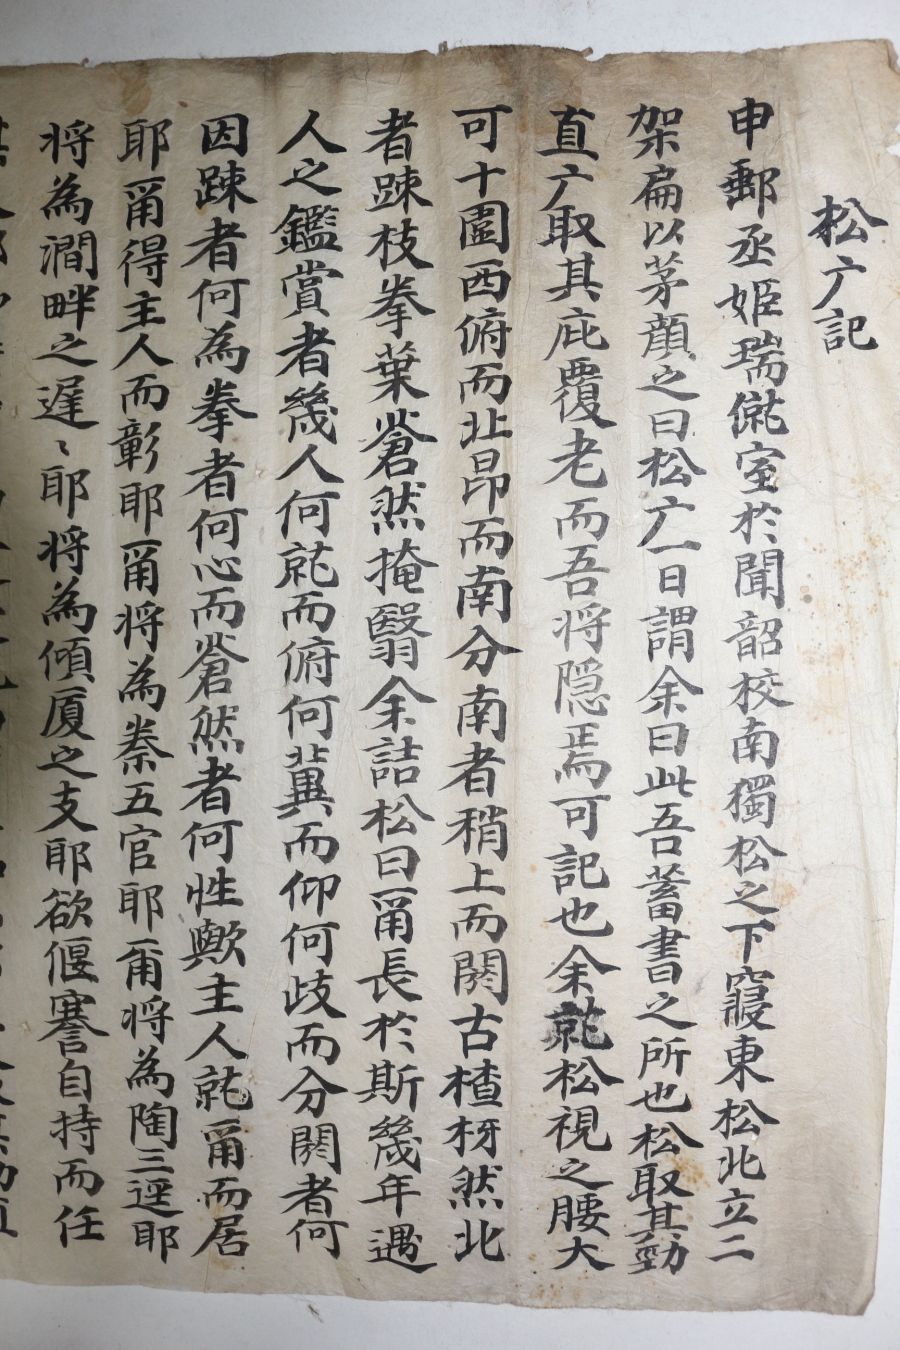 松广記
申郵丞姬瑞僦室於聞韶校南獨松之下寢東松北立二
架扁以茅顔之曰松广一日謂余曰此吾蓄書之所也松取其勁
直广取其庇覆老而吾将隠焉可記也余就松視之腰大
可十圍西俯而北昂而南分南者稍上而閼古楂枒然北
者踈枝拳葉蒼然掩翳余詰松曰甭長於斯幾年遇
人之鑑賞者幾人何就而俯何冀而仰何歧而分閼者何
因踈者何為拳者何心而蒼然者何性歟主人就甭而居
耶甭得主人而彰耶甭将為秦五官耶甭将為陶三逕耶
将為澗畔之遅〻耶将為傾厦之支耶欲偃蹇自持而任